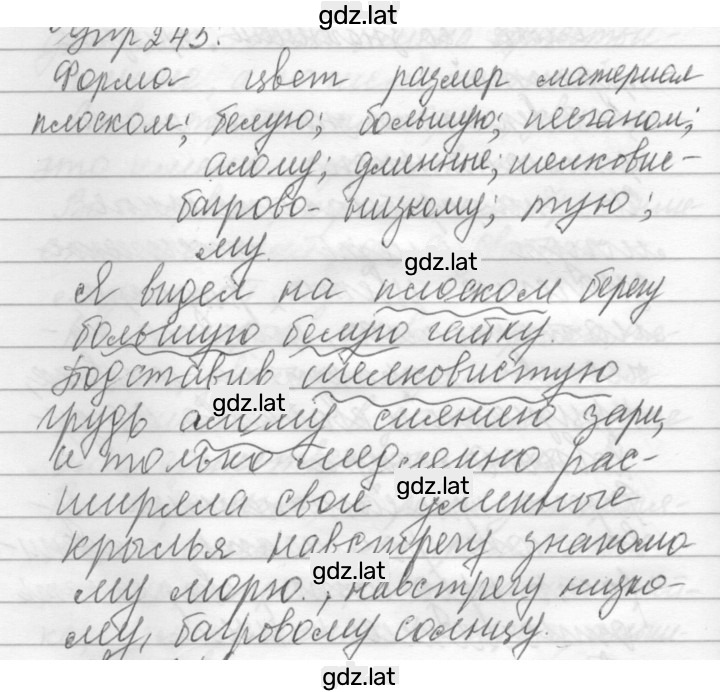 gdz.lat
Упр 245.
Форма цвет размер материал
плоском; белую; большую; песчаном;
алому; длинные; шелковис-
багрово- низкому; тую;
му.
gdz.lat
Я видел на плоском берегу
большую белую чайку.
Подставив шелковистую
gdz.lat
грудь алому сиянию зари,
и только медленно рас-
gdz.lat
ширяла свои длинные
крылья навстречу знакомо
gdz.lat
му морю, навстречу низко-
му, багровому солнцу.
gdz.lat